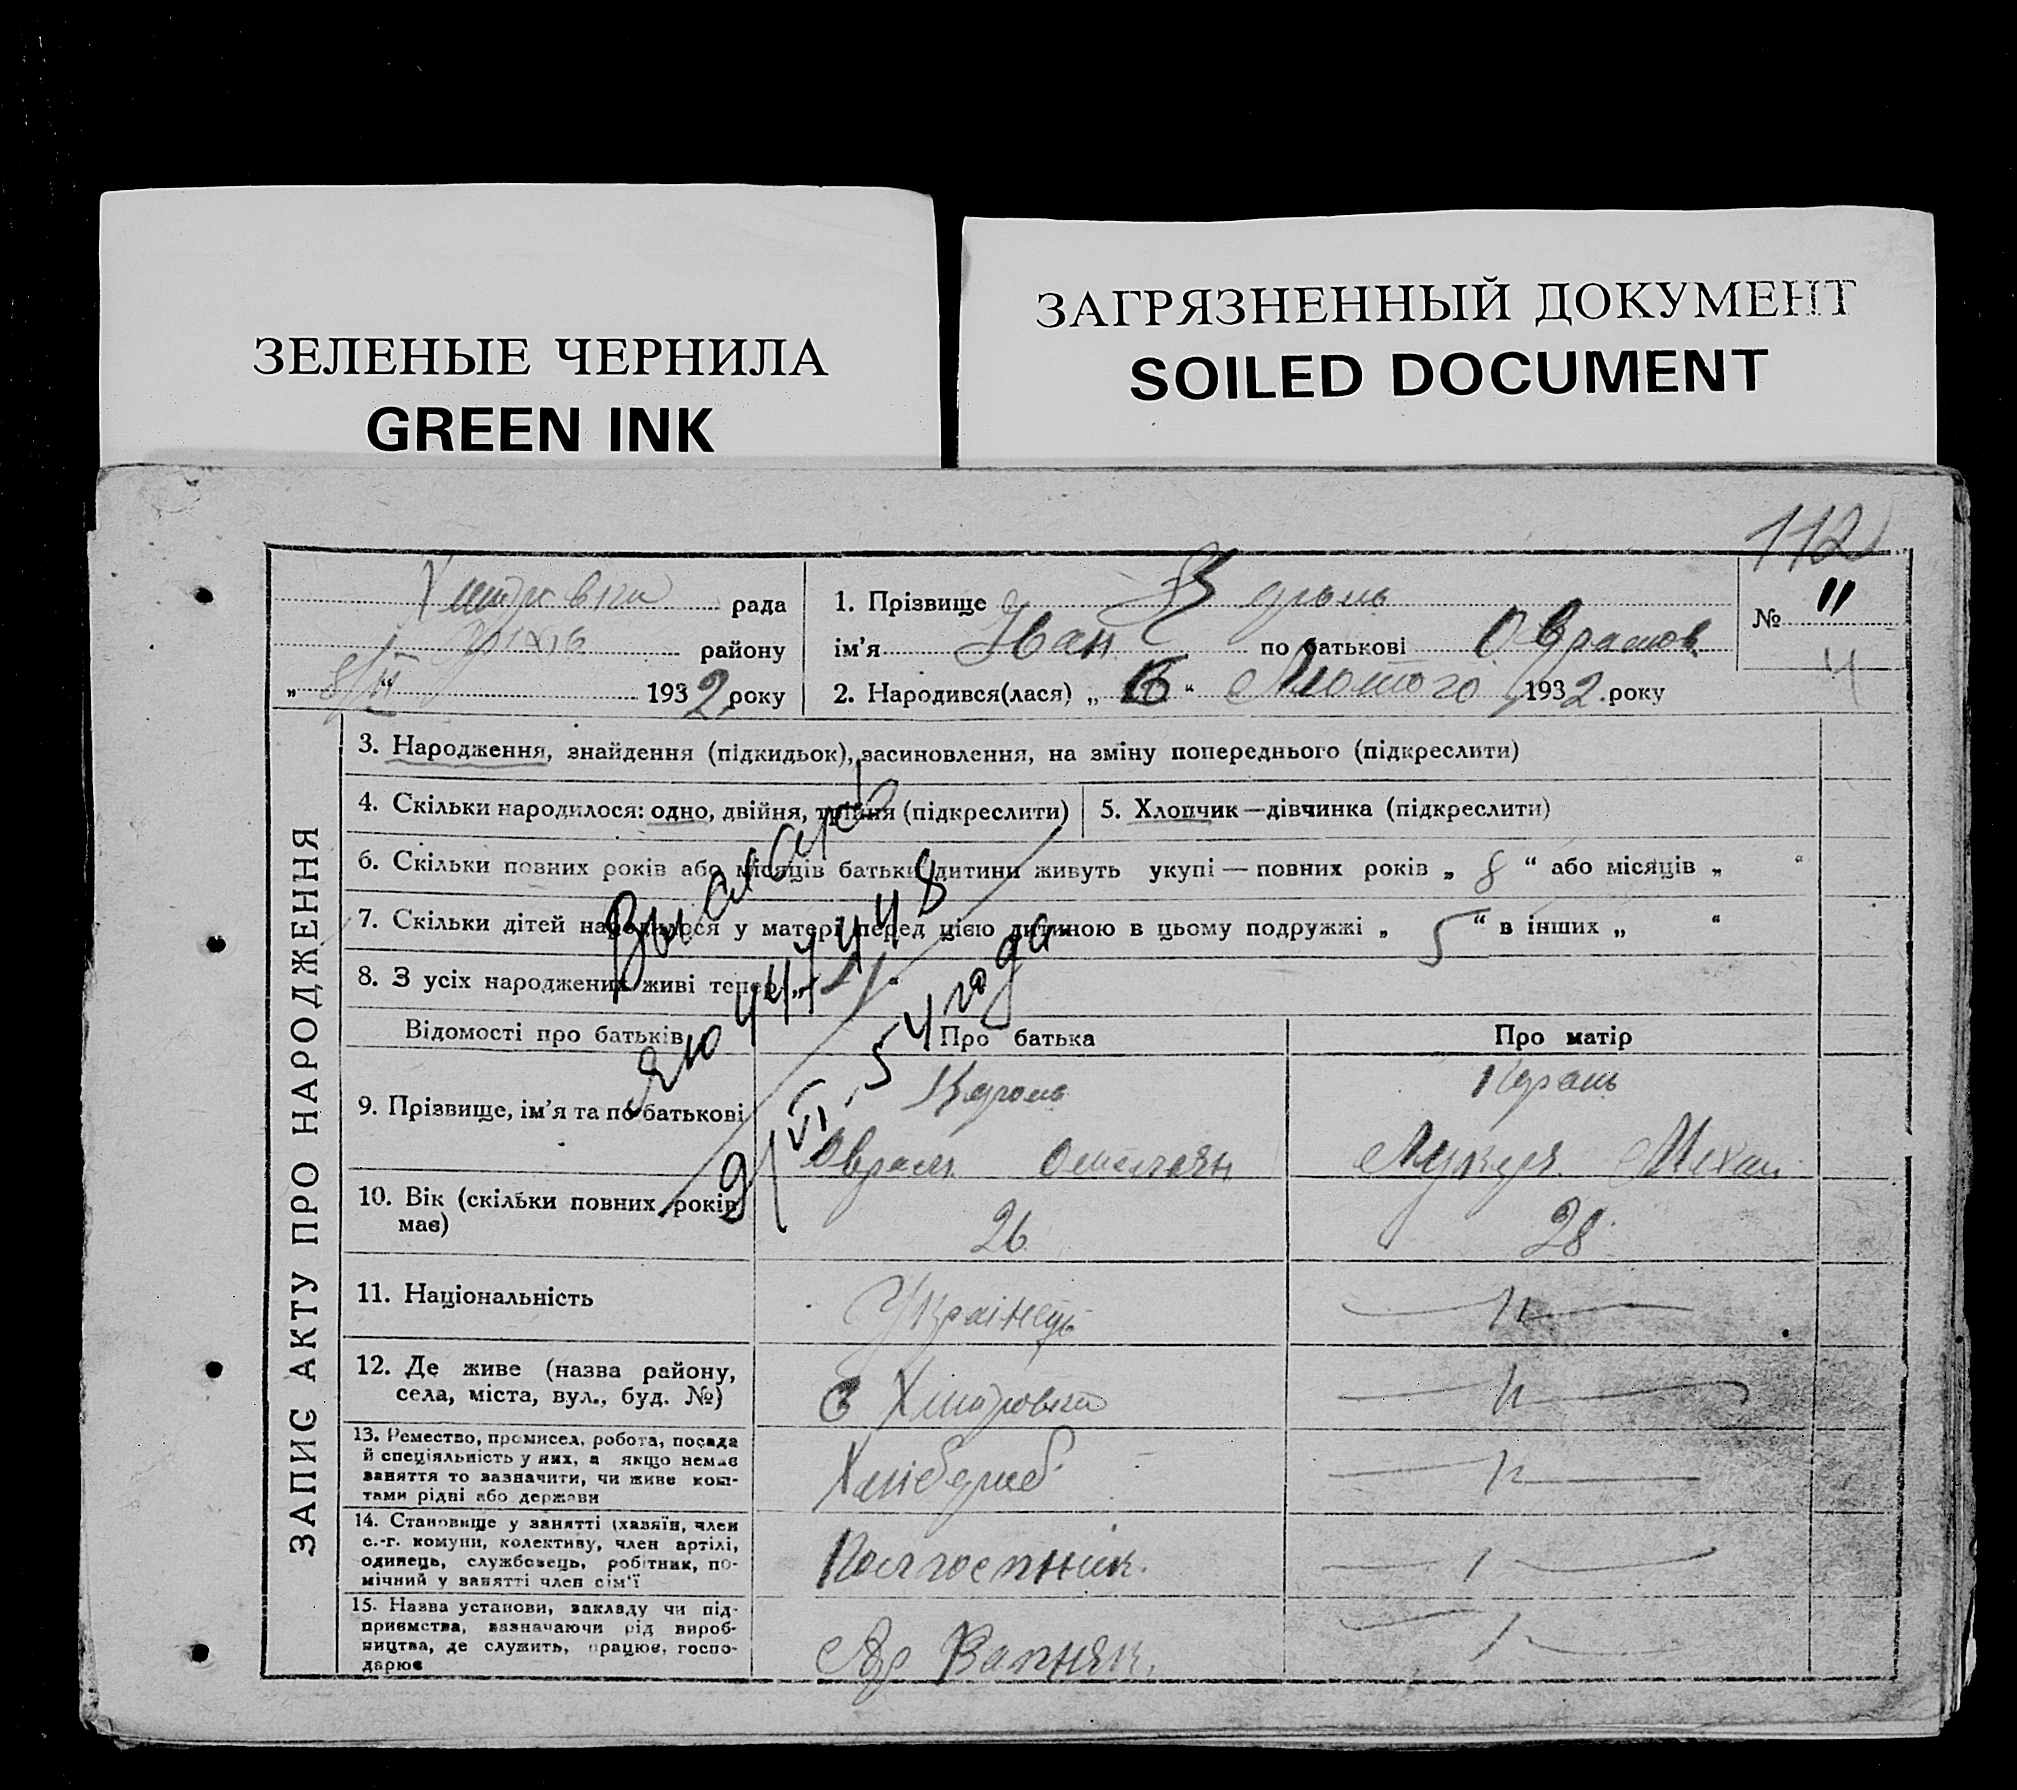 ЗЕЛЕНЫЕ ЧЕРНИЛА
GREEN INK
ЗАГРЯЗНЕННЫЙ ДОКУМЕНТ
SOILED DOCUMENT
112
рада
району
„ 8/II “ 1932 року
1. Прізвище
ім'я Іван по батькові Оврамов
2. Народився(лася) „ 6 “ Лютого 1932 року
№ 11
4
ЗАПИС АКТУ ПРО НАРОДЖЕННЯ
3. Народження, знайдення (підкидьок), засиновлення, на зміну попереднього (підкреслити)
4. Скільки народилося: одно, двійня, трійня (підкреслити)
5. Хлопчик—дівчинка (підкреслити)
6. Скільки повних років або місяців батьки дитини живуть укупі — повних років „ 8 “ або місяців „ “
7. Скільки дітей народилося у матері перед цією дитиною в цьому подружжі „ 5 “ в інших „ “
8. З усіх народжених живі тепер „ “
9/VI. 54 года
Відомості про батьків
Про батька
Про матір
9. Прізвище, ім'я та по батькові
Король
Король
Оврам Омелян
10. Вік (скільки повних років має)
26
28
11. Національність
Українець
— „ —
12. Де живе (назва району, села, міста, вул., буд. №)
— „ —
13. Ремество, промисел, робота, посада й спеціяльність у них, а якщо немає заняття то зазначити, чи живе коштами рідні або держави
Хлібороб
— „ —
14. Становище у занятті (хазяїн, член с.-г. комуни, колективу, член артілі, одинець, службовець, робітник, помічний у занятті член сім'ї
15. Назва установи, закладу чи підприємства, зазначаючи рід виробництва, де служить, працює, господарює